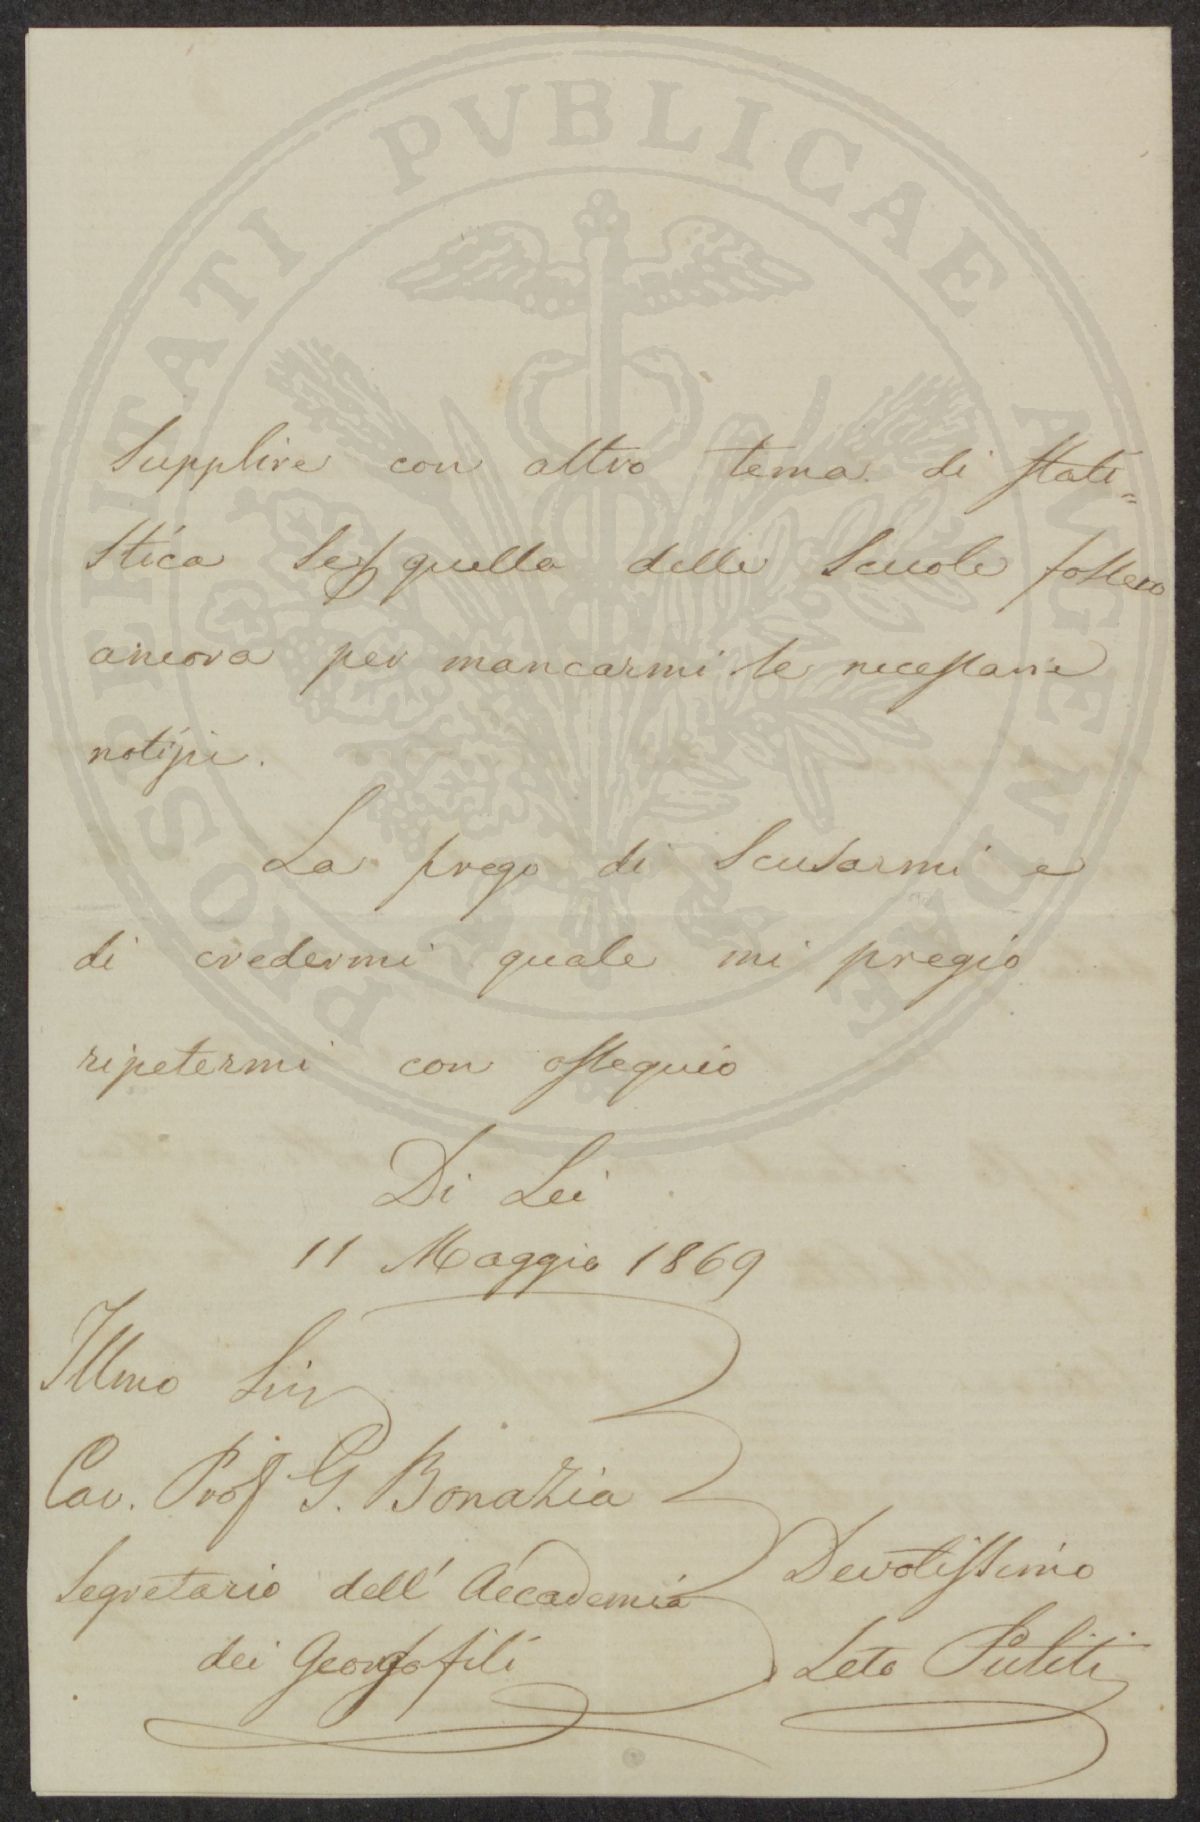 PROSPERITATI PVBLICAE AVGENDAE
Supplire con altro tema di stati=
stica se quella delle Scuole fossero
ancora per mancarmi le necessarie
notizie.
La prego di scusarmi e
di credermi quale mi pregio
ripetermi con ossequio
Di Lei
11 Maggio 1869
Illmo Sig
Cav. Prof G. Bonazia
Segretario dell' Accademia
dei Georgofili
Devotissimo
Leto Puliti